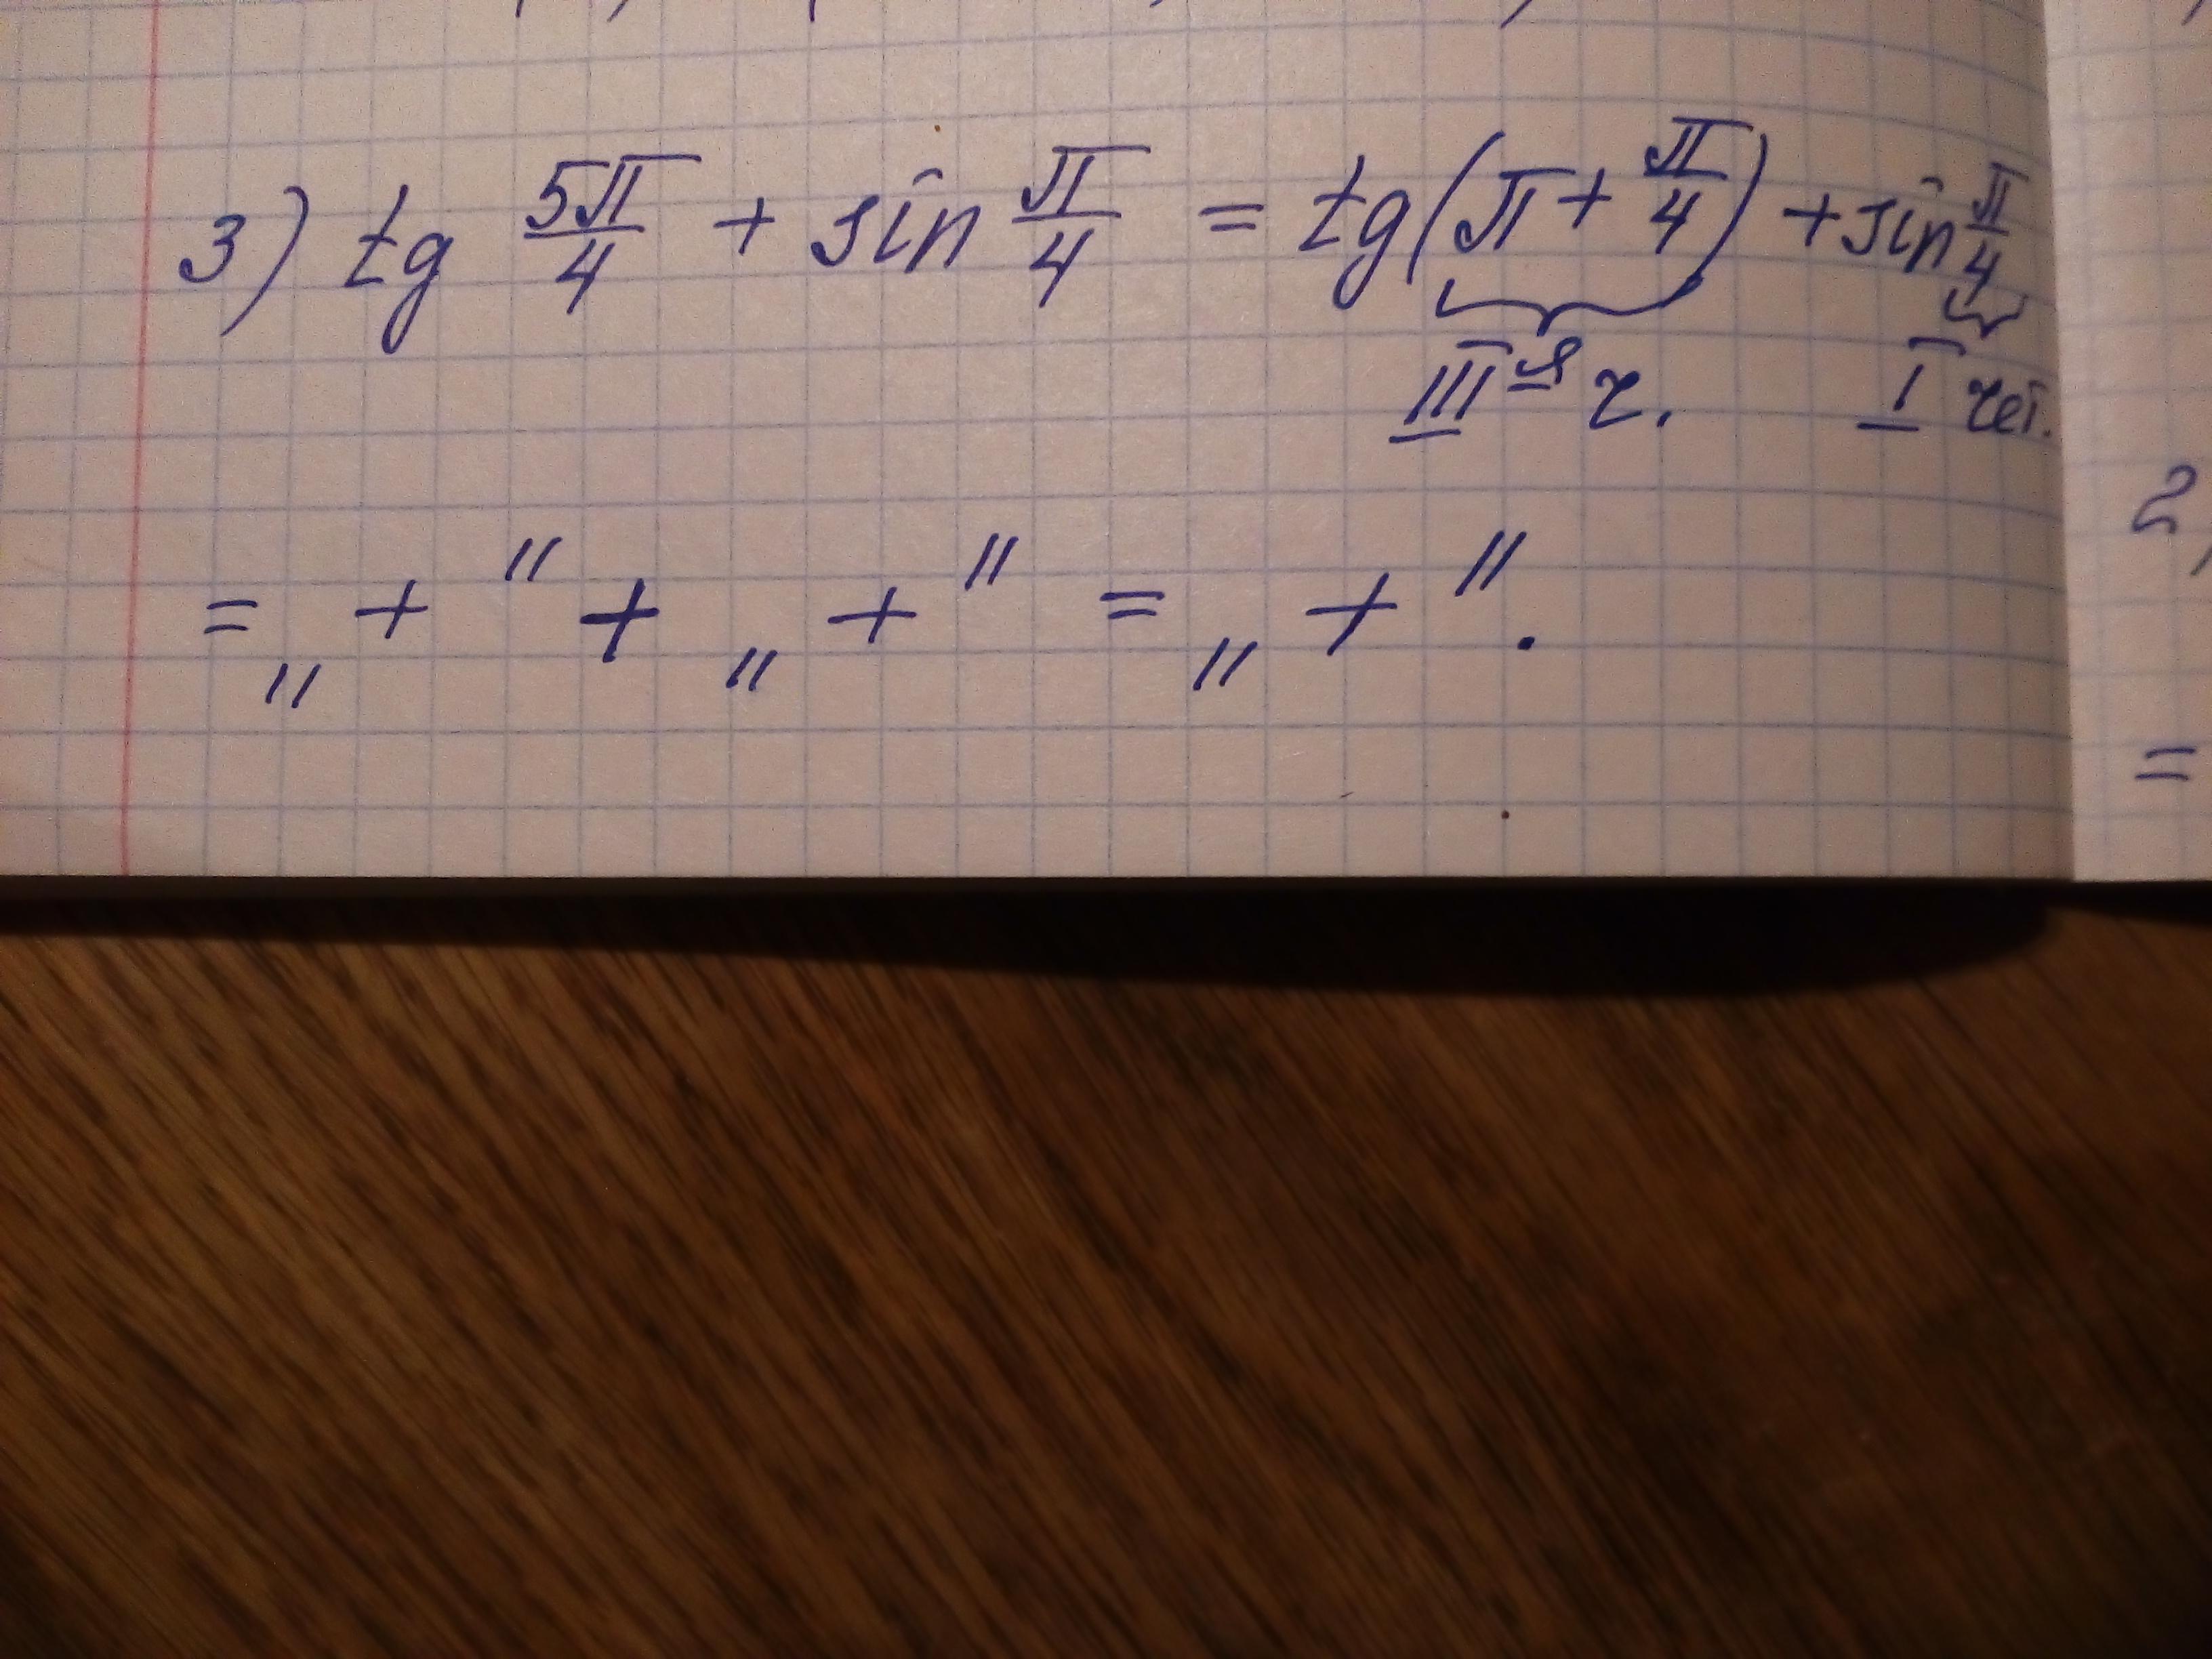 3) tg 5π/4 + sin π/4 = tg(π + π/4) + sin π/4
III-я ч. I чет.
= „ + " + „ + " = „ + ".
2,
=